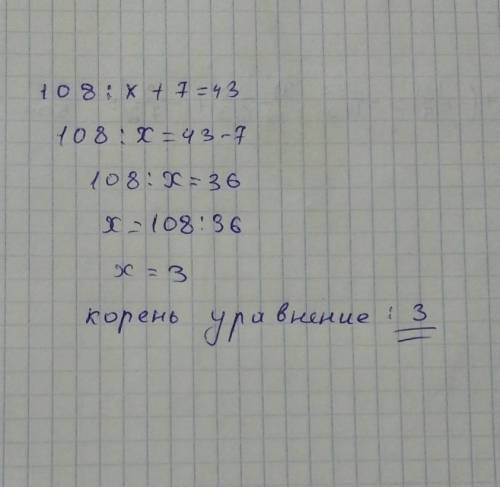 108 : x + 7 = 43
108 : x = 43 - 7
108 : x = 36
x = 108 : 36
x = 3
корень уравнение : 3